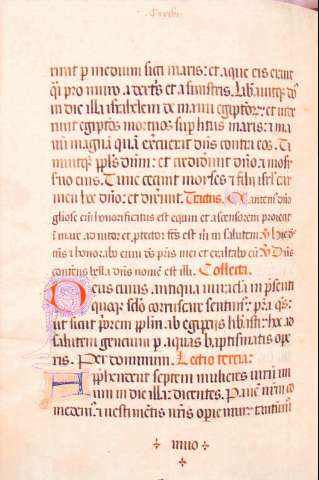 runt p medium sicci maris: et aque eis erant
q̄si pro muro a dextris et a sinistris. Lib̄auitq; d̄s
in die illa israhelem de manu egyptior̄: et uider̄
runt egiptos mortuos sup litus maris: et ma
nū magnā quā exercuerat dn̄s contra eos. Ti
muitq; ppl̄s dn̄m: et crediderunt dn̄o et moysi
suo eius. Tunc cecinit moyses et filij isrl̄ car
men hec dn̄o: et dixerunt. Tractus. Cantem; dn̄o
gliose eni honorificatus est equum et ascensorem proiecit
i mare adiutor et ptector fc̄s est m̄ in salutem. V̄ hic
et honorabo eum d̄s pris mei et exaltabo eū. V̄ Dn̄s
conterens bella dn̄s nomen est illi. Collecta.
Deus cuius antiqua miracla in p̄senti
quoq; sclo coruscare sentim;: p̄ra q̄s:
ut sicut pplm ab egyptijs libasti: hoc ad
salutem gencium p aquas baptismatis ope
ris. Per dominum. Lectio tercia.
Apphendent septem mulieres uirū un
um in die illa: dicentes. Panē nr̄m co
medem; et uestimentis nr̄is opiemur: tantum